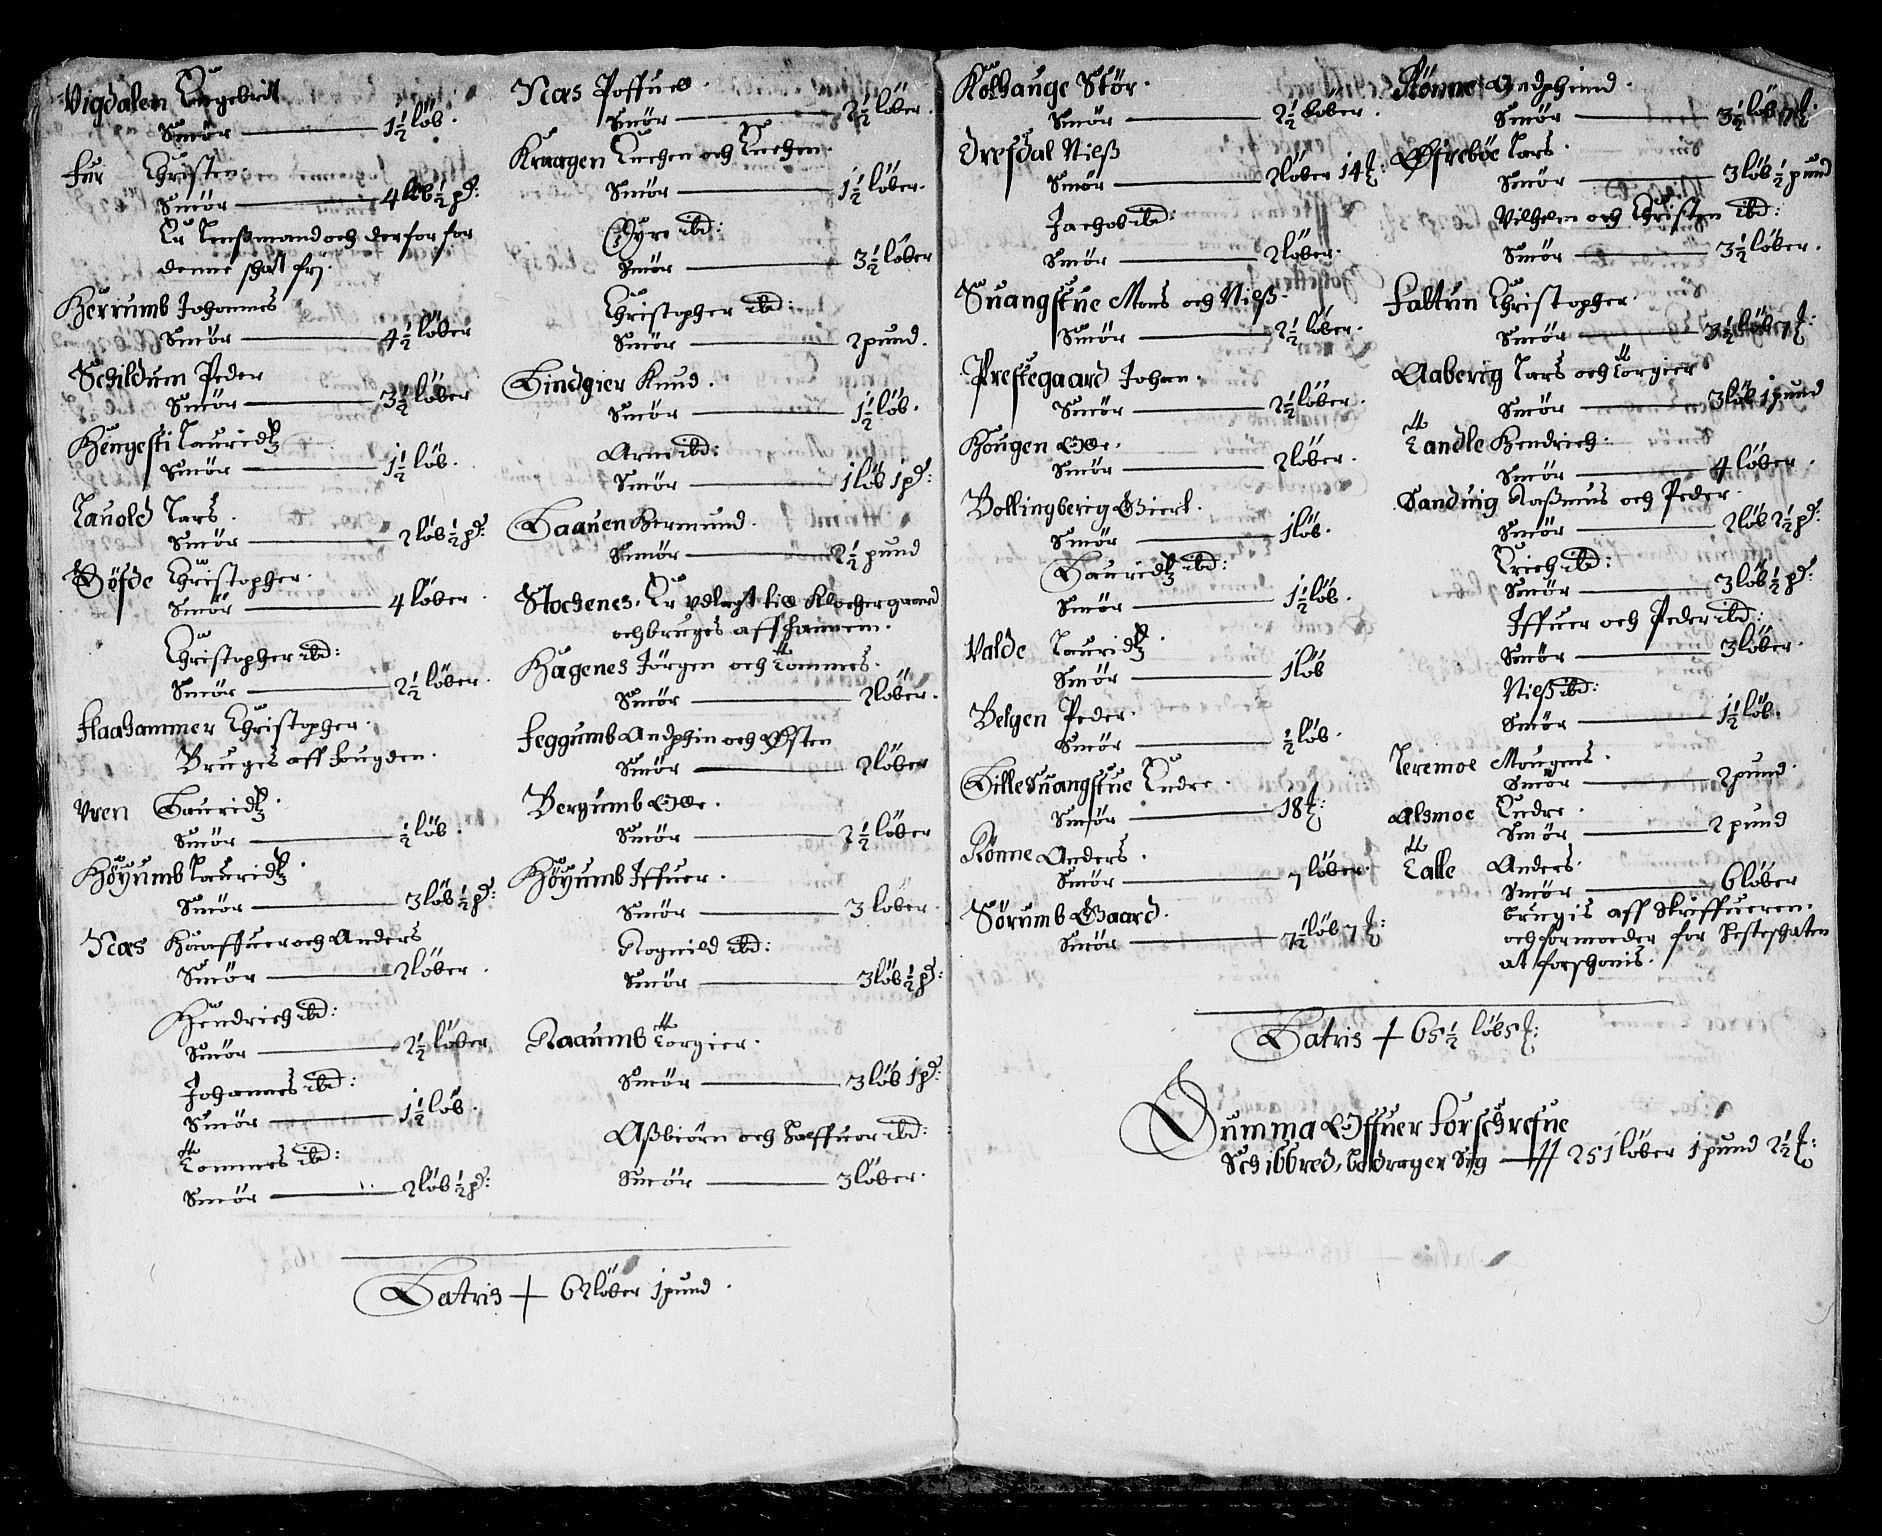 Vigdalen Engebrit
Smør — 1½ löb.
Fur Christen
Smör — 4 löb ½ pd:
Er Lenßmand och derfor for
denne schatt frj.
Herrumb Johannes
Smör — 4½ löber
Schildum Peder
Smör — 3½ löber
Hengesti Lauridtz
Smör — 1½ löb.
Lauold Lars.
Smör — 2 löb ½ pd:
Böfde Christopher.
Smör — 4 löber.
Christopher ibd:
Smör — 2½ löber.
Flaahammer Christopher.
Bruges aff fougden.
Vren Lauridtz.
Smör — ½ löb.
Höyumb Lauridtz.
Smör — 3 löb ½ pd:
Næs Haaffuer och Anders
Smör — 2 löber.
Hendrich ibd:
Smör — 2½ löber
Johannes ibd:
Smör — 1½ löb.
Tommes ibd:
Smör — 2 löb ½ pd:
Næs Poffuel.
Smör — 2½ löber.
Kraagen Enchen och Enchen.
Smör — 1½ löber.
Gyre ibd:
Smör — 3½ löber
Christopher ibd:
Smör — 2 pund.
Lindgier Knud.
Smör — 1½ löb.
Arne ibd:
Smör — 1 löb 1 pd:
Laauen Hermund.
Smör — 2½ pund
Stochenes. Er vdlagt till Klochergaard
och bruges aff hannem.
Hagenes Jörgen och Tommes.
Smör — 2 löber.
Feggumb Andphin och Østen
Smör — 2 löber
Bergumb Olle.
Smör — 2½ löber
Höyumb Iffuer.
Smör — 3 löber.
Rognild ibd:
Smör — 3 löb ½ pd:
Naaumb Torgier.
Smör — 3 löb 1 pd:
Aßbiörn och Halffuor ibd:
Smör — 3 löber.
Latris + 62 löber 1 pund.
Kolhauge Stör.
Smör — 2½ löber.
Drefdal Nielß
Smör — 2 löber 14 ℔:
Jachob ibd:
Smör — 2 löber.
Suangstue Mons och Nielß.
Smör — 2½ löber.
Prestegaard Johan.
Smör — 2½ löber.
Hougen Olle.
Smör — 2 löber.
Bollingberig Giert.
Smör — 1 löb.
Lauridtz ibd:
Smör — 1½ löb.
Valde Lauridtz.
Smör — 1 löb
Belgen Peder.
Smör — ½ löb.
Lille Suangstue Endre.
Smör — 18 ℔:
Rönne Anders.
Smör — 7 löber.
Sörumb Gaard.
Smör — 7½ löb 7 ℔:
Rönne Andpheind.
Smör — 3½ löb 7 ℔:
Øfrebøe Lars.
Smör — 3 löb ½ pund
Vilhelm och Christen ibd:
Smör — 3½ löber.
Faltun Christopher.
Smör — 3½ löb 7 ℔:
Aaberig Lars och Torgier
Smör — 3 löb 1 pund
Tandle Hendrich.
Smör — 4 löber.
Sanduig Raßmus och Peder.
Smör — 2 löb 2½ pd:
Erich ibd:
Smör — 3 löb ½ pd:
Iffuer och Peder ibd:
Smör — 3 löber.
Nielß ibd:
Smör — 1½ löb.
Leremoe Mougens.
Smör — 2 pund.
Alsmoe Endre.
Smör — 2 pund
Talle Anders.
Smör — 6 löber
brugis aff Skriffueren.
och formoeder for hesteschaten
at forschonis.
Latris + 65½ löb 5 ℔:
Summa Offuer forschrefne
Schibbred, bedrager Sig — 251 löber 1 pund 2½ ℔: